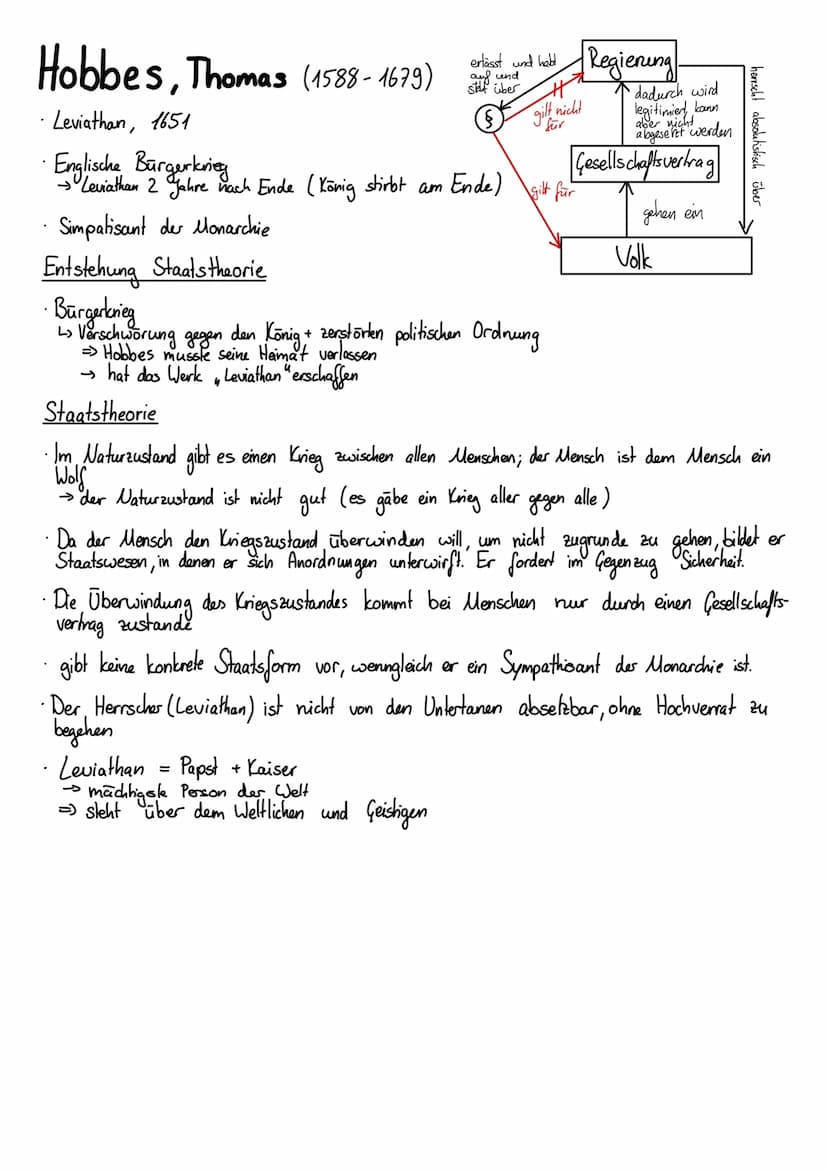 Hobbes, Thomas (1588 - 1679)
· Leviathan, 1651
· Englische Bürgerkrieg
→ Leviathan 2 Jahre nach Ende (König stirbt am Ende)
· Simpatisant der Monarchie
erlässt und hebt
auf und
steht über
Regierung
§
gilt nicht
für
dadurch wird
legitimiert, kann
aber nicht
abgesetzt werden
herrscht absolutistisch über
Gesellschaftsvertrag
gilt für
gehen ein
Volk
Entstehung Staatstheorie
· Bürgerkrieg
↳ Verschwörung gegen den König + zerstörten politischen Ordnung
⇒ Hobbes musste seine Heimat verlassen
→ hat das Werk „Leviathan“ erschaffen
Staatstheorie
· Im Naturzustand gibt es einen Krieg zwischen allen Menschen; der Mensch ist dem Mensch ein
Wolf
→ der Naturzustand ist nicht gut (es gäbe ein Krieg aller gegen alle)
· Da der Mensch den Kriegszustand überwinden will, um nicht zugrunde zu gehen, bildet er
Staatswesen, in denen er sich Anordnungen unterwirft. Er fordert im Gegenzug Sicherheit.
· Die Überwindung des Kriegszustandes kommt bei Menschen nur durch einen Gesellschafts-
vertrag zustande
· gibt keine konkrete Staatsform vor, wenngleich er ein Sympathisant der Monarchie ist.
· Der Herrscher (Leviathan) ist nicht von den Untertanen absetzbar, ohne Hochverrat zu
begehen
· Leviathan = Papst + Kaiser
→ mächtigste Person der Welt
⇒ steht über dem Weltlichen und Geistigen